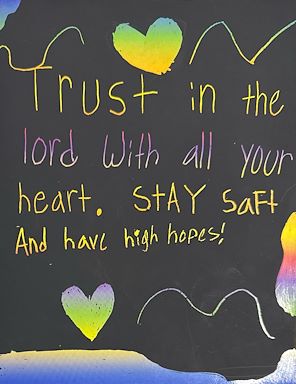 Trust in the
lord with all your
heart. STAY Saft
And have high hopes!